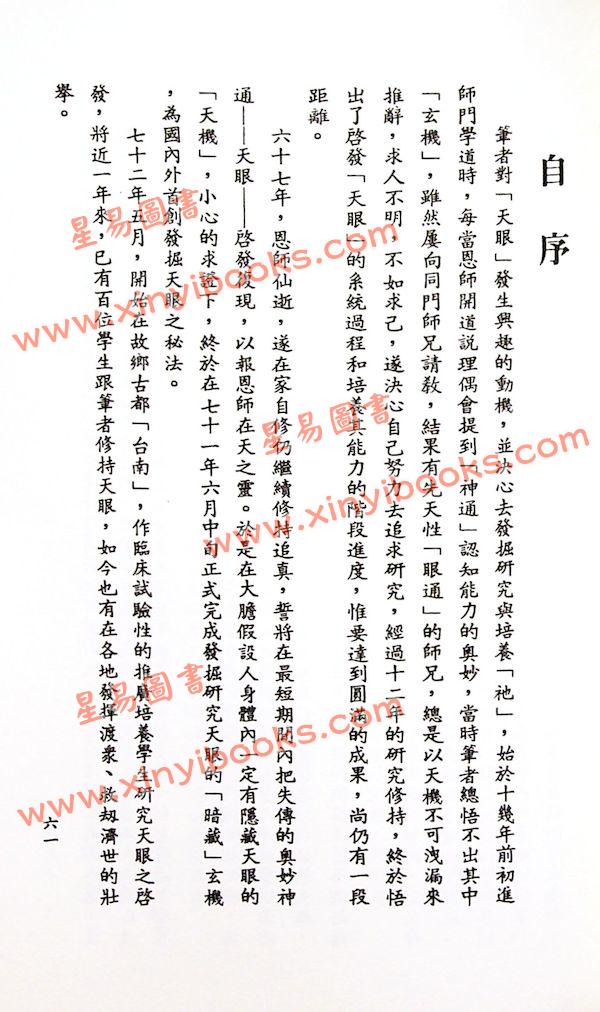 自序
筆者對「天眼」發生興趣的動機，並決心去發掘研究與培養「祂」，始於十幾年前初進
師門學道時，每當恩師開道説理偶會提到「神通」認知能力的奧妙，當時筆者總悟不出其中
「玄機」，雖然屢向同門師兄請教，結果有先天性「眼通」的師兄，總是以天機不可洩漏來
推辭，求人不明，不如求己，遂決心自己努力去追求研究，經過十二年的研究修持，終於悟
出了啓發「天眼」的系統過程和培養其能力的階段進度，惟要達到圓滿的成果，尚仍有一段
距離。
六十七年，恩師仙逝，遂在家自修仍繼續修持追真，誓將在最短期間內把失傳的奧妙神
通——天眼——啓發復現，以報恩師在天之靈。於是在大膽假設人身體內一定有隱藏天眼的
「天機」，小心的求證下，終於在七十一年六月中旬正式完成發掘研究天眼的「暗藏」玄機
，為國內外首創發掘天眼之秘法。
七十二年五月，開始在故鄉古都「台南」，作臨床試驗性的推廣培養學生研究天眼之啓
發，將近一年來，已有百位學生跟筆者修持天眼，如今也有在各地發揮渡衆、救劫濟世的壯
舉。
六一
星易圖書
www.xinyibooks.com
星易圖書
www.xinyibooks.com
星易圖書
www.xinyibooks.com